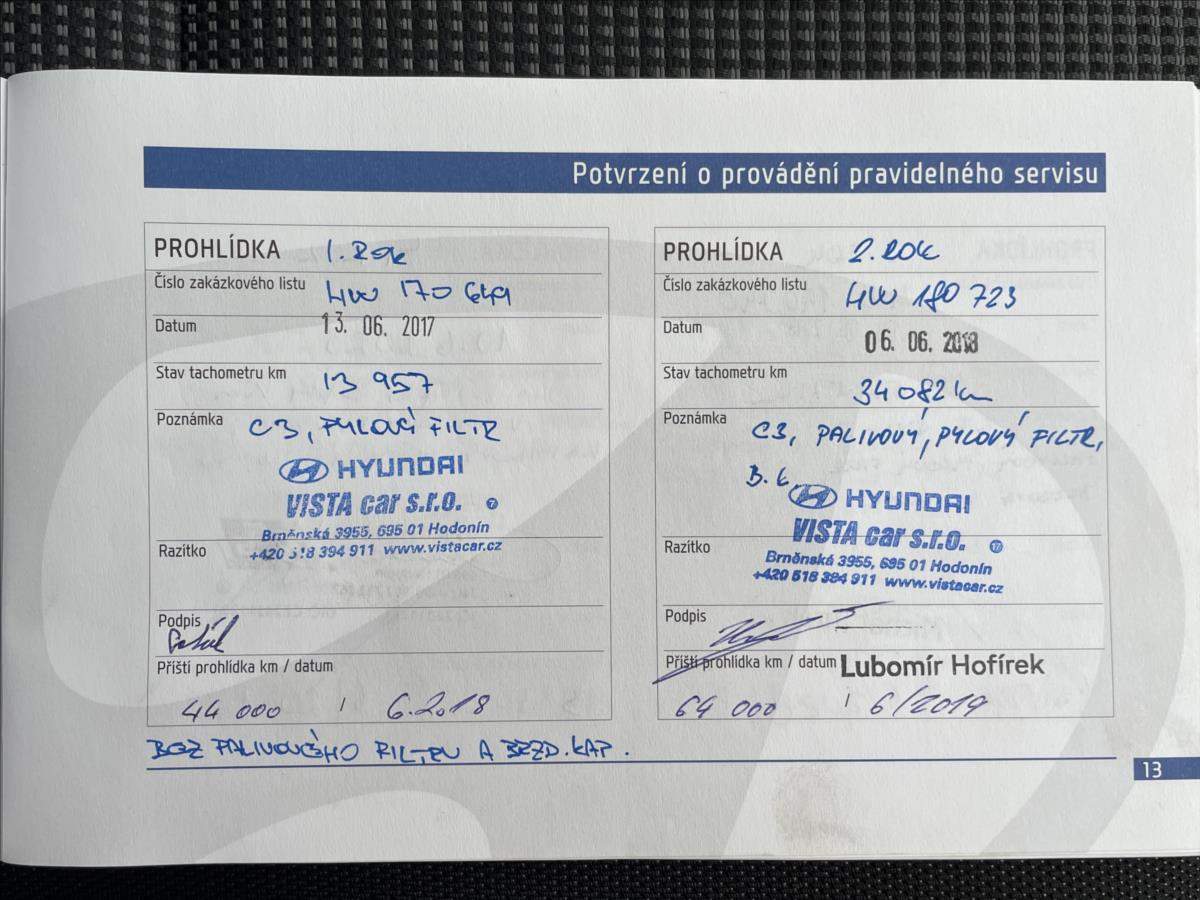 Potvrzení o provádění pravidelného servisu
PROHLÍDKA 1. Rok
Číslo zakázkového listu 4W 170 649
Datum 13. 06. 2017
Stav tachometru km 13 957
Poznámka C3, PYLOVÝ FILTR
HYUNDAI
VISTA car s.r.o.
Brněnská 3955, 695 01 Hodonín
Razítko +420 518 394 911 www.vistacar.cz
Podpis
Příští prohlídka km / datum
44 000 / 6.2018
BEZ PALIVOVÉHO FILTRU A BRZD. KAP.
PROHLÍDKA 2. ROK
Číslo zakázkového listu 4W 180 723
Datum 06. 06. 2018
Stav tachometru km 34 082 km
Poznámka C3, PALIVOVÝ, PYLOVÝ FILTR,
B. K.
HYUNDAI
VISTA car s.r.o.
Razítko
Brněnská 3955, 695 01 Hodonín
+420 518 394 911 www.vistacar.cz
Podpis
Příští prohlídka km / datum Lubomír Hofírek
64 000 / 6/2019
13